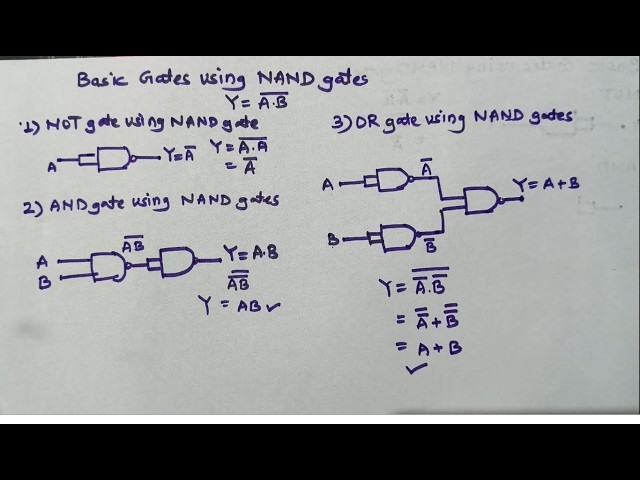 Basic Gates using NAND gates
Y = A̅·̅B̅
1) NOT gate using NAND gate
A
Y = A̅
Y = A̅·̅A̅
= A̅
2) AND gate using NAND gates
A
B
A̅B̅
Y = A·B
A̿B̿
Y = AB ✓
3) OR gate using NAND gates
A
A̅
B
B̅
Y = A + B
Y = \overline{A̅·B̅}
= A̿ + B̿
= A + B
✓